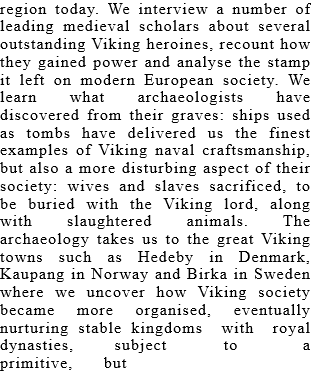 region today. We interview a number of
leading medieval scholars about several
outstanding Viking heroines, recount how
they gained power and analyse the stamp
it left on modern European society. We
learn what archaeologists have
discovered from their graves: ships used
as tombs have delivered us the finest
examples of Viking naval craftsmanship,
but also a more disturbing aspect of their
society: wives and slaves sacrificed, to
be buried with the Viking lord, along
with slaughtered animals. The
archaeology takes us to the great Viking
towns such as Hedeby in Denmark,
Kaupang in Norway and Birka in Sweden
where we uncover how Viking society
became more organised, eventually
nurturing stable kingdoms with royal
dynasties, subject to a
primitive, but